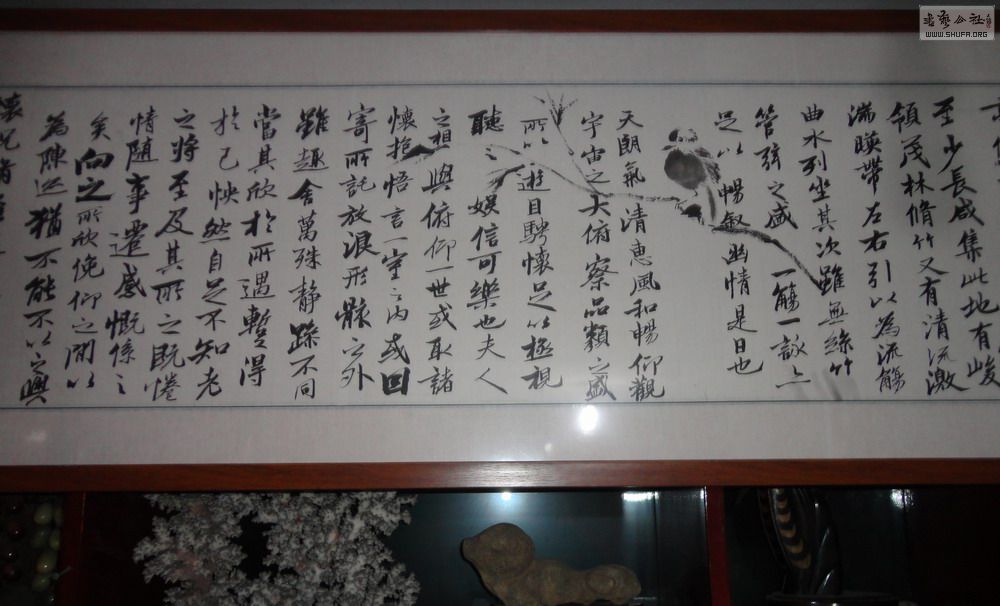 至少長咸集此地有峻
領茂林脩竹又有清流激
湍暎帶左右引以為流觴
曲水列坐其次雖無絲竹
管弦之盛一觴一詠亦
足以暢敘幽情是日也
天朗氣清惠風和暢仰觀
宇宙之大俯察品類之盛
所以遊目騁懷足以極視
聽娛信可樂也夫人
之相與俯仰一世或取諸
懷抱悟言一室之內或因
寄所託放浪形骸之外
雖趣舍萬殊靜躁不同
當其欣於所遇蹔得
於己怏然自足不知老
之將至及其所之既惓
情隨事遷感慨係之
矣向之所欣俛仰之閒以
為陳迹猶不能不以之興
懷況脩
书艺公社
WWW.SHUFA.ORG